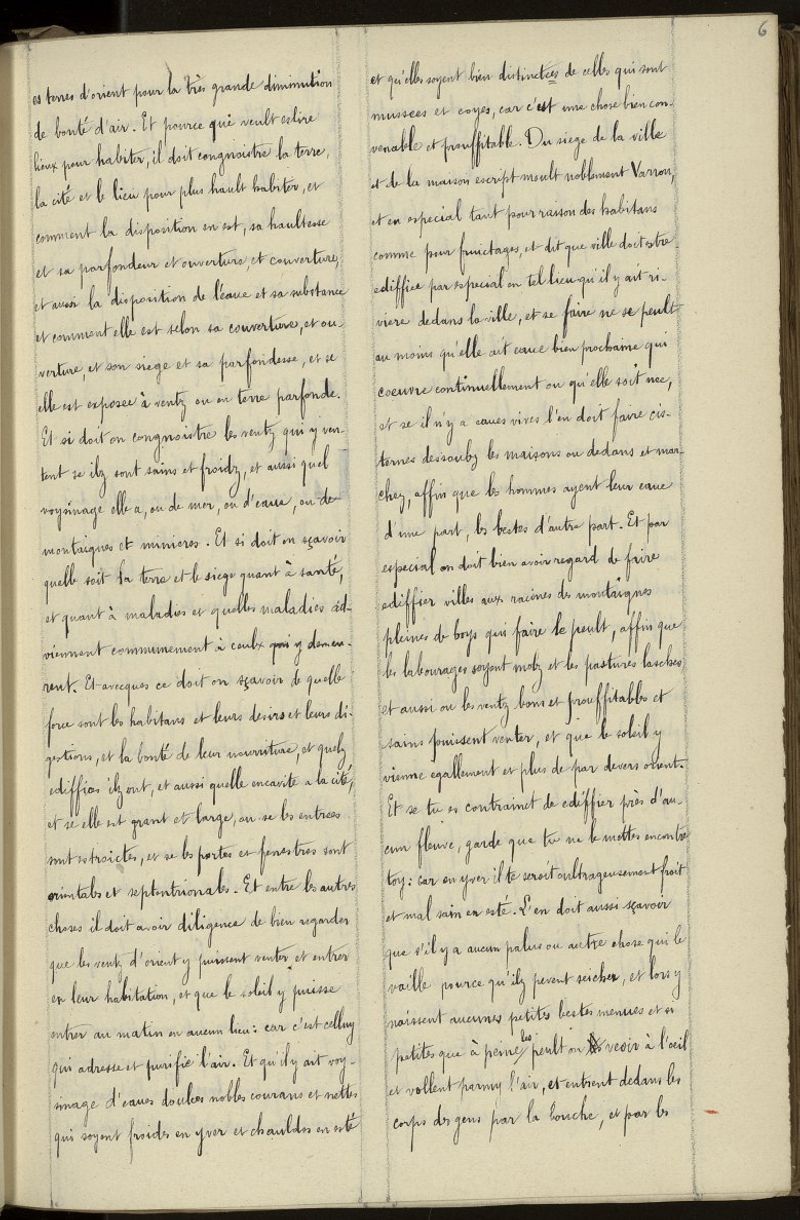 6
es terres d'orient pour la très grande diminution
de bonté d'air. Et pource qui veult eslire
lieux pour habiter, il doit congnoistre la terre,
la cité et le lieu pour plus hault habiter, et
comment la disposition en est, sa haultesse
et sa parfondeur et ouverture, et couverture,
et aussi la disposition de l'eaue et sa substance
et comment elle est selon sa couverture, et ou-
verture, et son siege et sa parfondesse, et se
elle est exposee à ventz ou en terre parfonde.
Et si doit on congnoistre les ventz qui y ven-
tent se ilz sont sains et froidz, et aussi quel
voysinage elle a, ou de mer, ou d'eaue, ou de
montaignes et minieres. Et si doit on sçavoir
quelle soit la terre et le siege quant à santé,
et quant à maladies et quelles maladies ad-
viennent communement à ceulx qui y demeu-
rent. Et avecques ce doit on sçavoir de quelle
force sont les habitans et leurs desirs et leurs di-
gestions, et la bonté de leur nourriture, et quelz
edifficos ilz ont, et aussi quelle encavite a la cité,
et se elle est grant et large, ou se les entrees
sont estroictes, et se les portes et fenestres sont
orientales et septentrionales. Et entre les autres
choses il doit avoir diligence de bien regarder
que les ventz d'orient y puissent venter et entrer
en leur habitation, et que le soleil y puisse
entrer au matin en aucun lieu: car c'est celluy
qui adresse et purifie l'air. Et qu'il y ait voy-
sinage d'eaues doulces nobles courans et nettes
qui soyent froides en yver et chauldes en esté
et qu'elles soyent bien distinctees de celles qui sont
mussees et coyes, car c'est une chose bien con-
venable et prouffitable. Du siege de la ville
et de la maison escript moult noblement Varron,
et en especial tant pour raison des habitans
comme pour fruictages, et dit que ville doit estre
ediffiee par especial en tel lieu qu'il y ait ri-
viere dedans la ville, et se faire ne se peult
au moins qu'elle ait eaue bien prochaine qui
coeuvre continuellement ou qu'elle soit nee,
et se il n'y a eaues vives l'en doit faire cis-
ternes dessoubz les maisons ou dedans et mar-
chez, affin que les hommes ayent leur eaue
d'une part, les bestes d'autre part. Et par
especial on doit bien avoir regard de faire
ediffier villes aux racines des montaignes
pleines de boys qui faire le peult, affin que
les labourages soyent molz et les pastures lasches
et aussi ou les ventz bons et prouffitables et
sains puissent venter, et que le soleil y
vienne egallement et plus de par devers orient.
Et se tu es contrainct de ediffier près d'au-
cun fleuve, garde que tu ne le mettes encontre
toy: car en yver il te seroit oultrageusement froit
et mal sain en esté. L'en doit aussi sçavoir
que s'il y a aucun palus ou autre chose qui le
vaille pource qu'ilz pevent seicher, et lors y
naissent aucunes petites bestes menues et si
petites que à peine les peult on veoir à l'oeil
et vollent parmy l'air, et entrent dedans les
corps des gens par la bouche, et par les